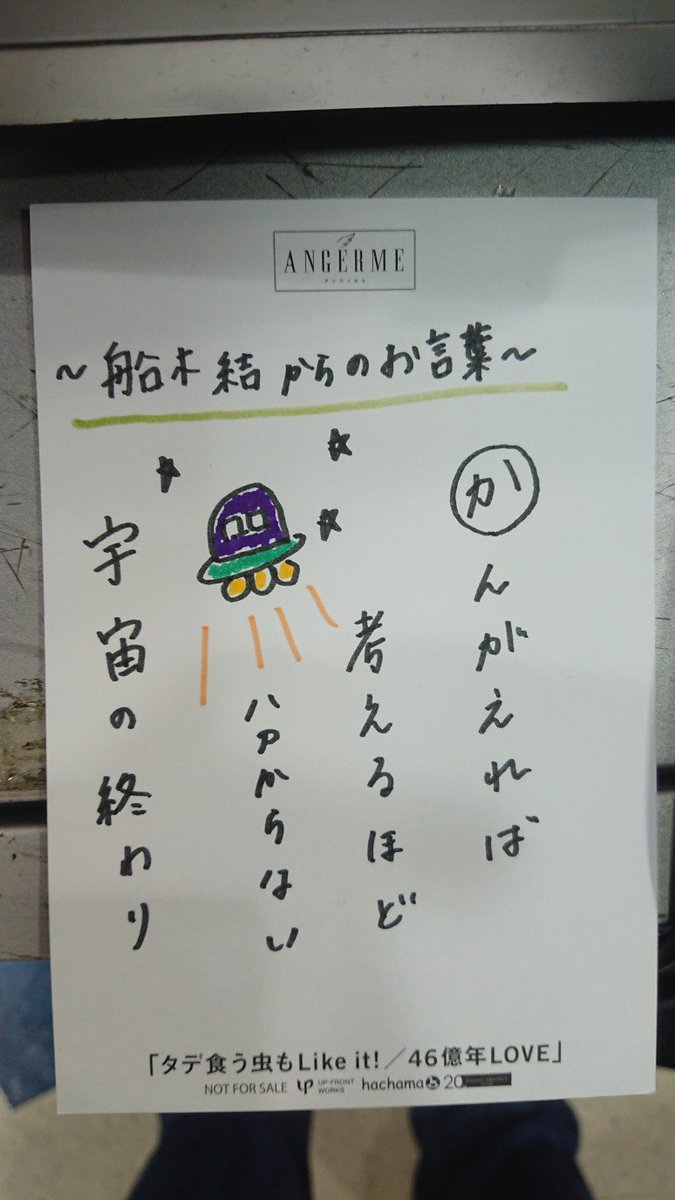 ANGERME
アンジュルム
~船木結からのお言葉~
かんがえれば
考えるほど
分からない
宇宙の終わり
「タデ食う虫もLike it!/46億年LOVE」
NOT FOR SALE UP UP-FRONT WORKS hachama 20